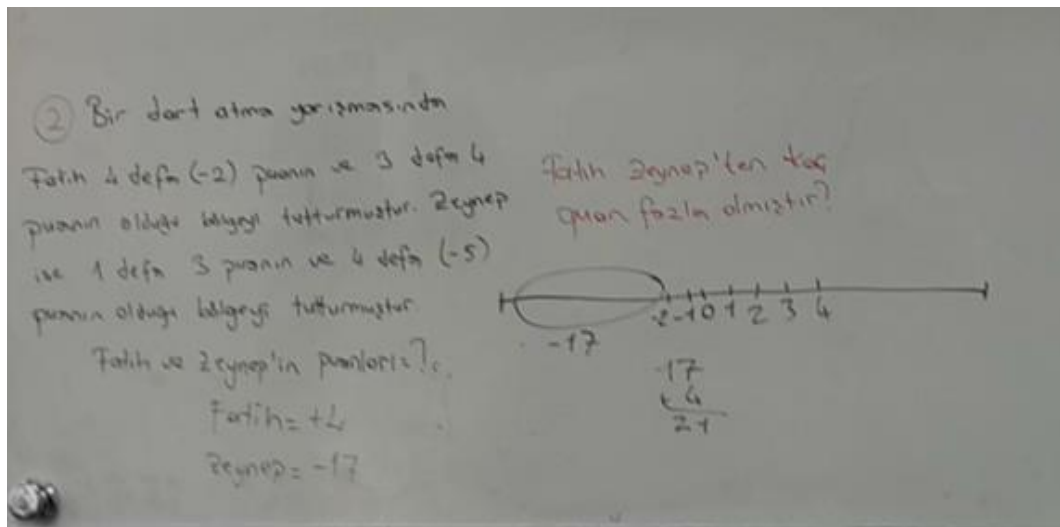 ② Bir dart atma yarışmasında
Fatih 4 defa (-2) puanın ve 3 defa 4
puanın olduğu bölgeyi tutturmuştur. Zeynep
ise 1 defa 3 puanın ve 4 defa (-5)
puanın olduğu bölgeyi tutturmuştur.
Fatih ve Zeynep'in puanları=?
Fatih= +4
Zeynep= -17
Fatih Zeynep'ten kaç
puan fazla almıştır?
-2 -1 0 1 2 3 4
-17
-17
4
21